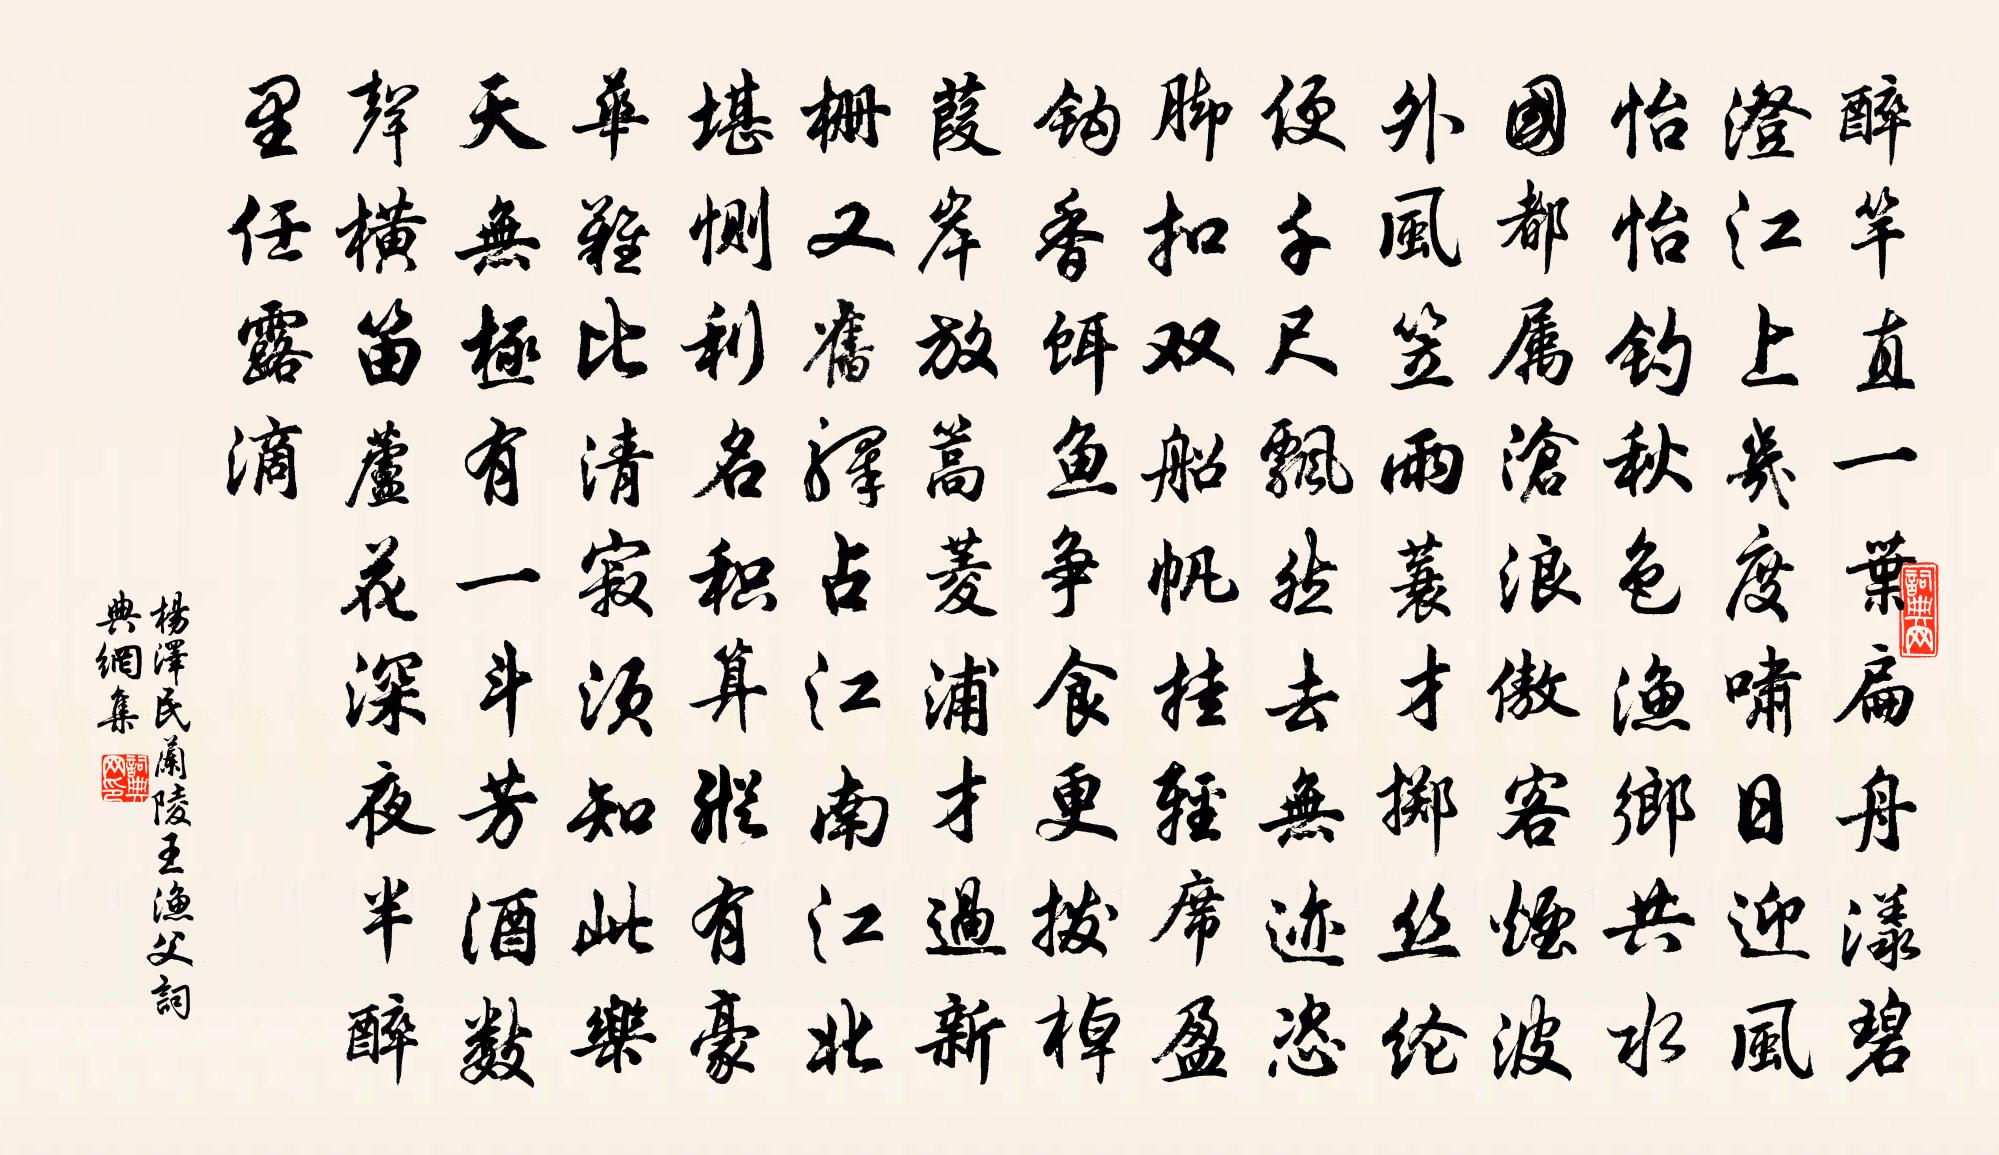 醉竿直一葉扁舟漾碧
澄江上幾度嘯日迎風
怡怡怡钓秋色渔鄉共水
國都属滄浪傲客煙波
外風笠雨蓑才掷丝纶
便千尺飄然去無迹恣
脚扣双船帆挂輕席盈
鈎香饵鱼争食更拨棹
葭岸放篙菱浦才過新
栅又舊驛占江南江北
堪惻利名积算縱有豪
華難比清寂须知此樂
天無極有一斗芳酒数
聲横笛蘆花深夜半醉
里任露滴
楊澤民蘭陵王渔父詞
典網集
詞典网
詞典网印